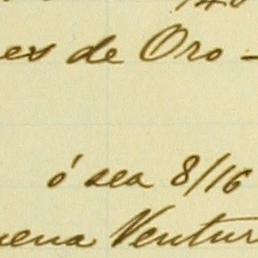 es de Oro —
ó sea 8/16
uena Ventur